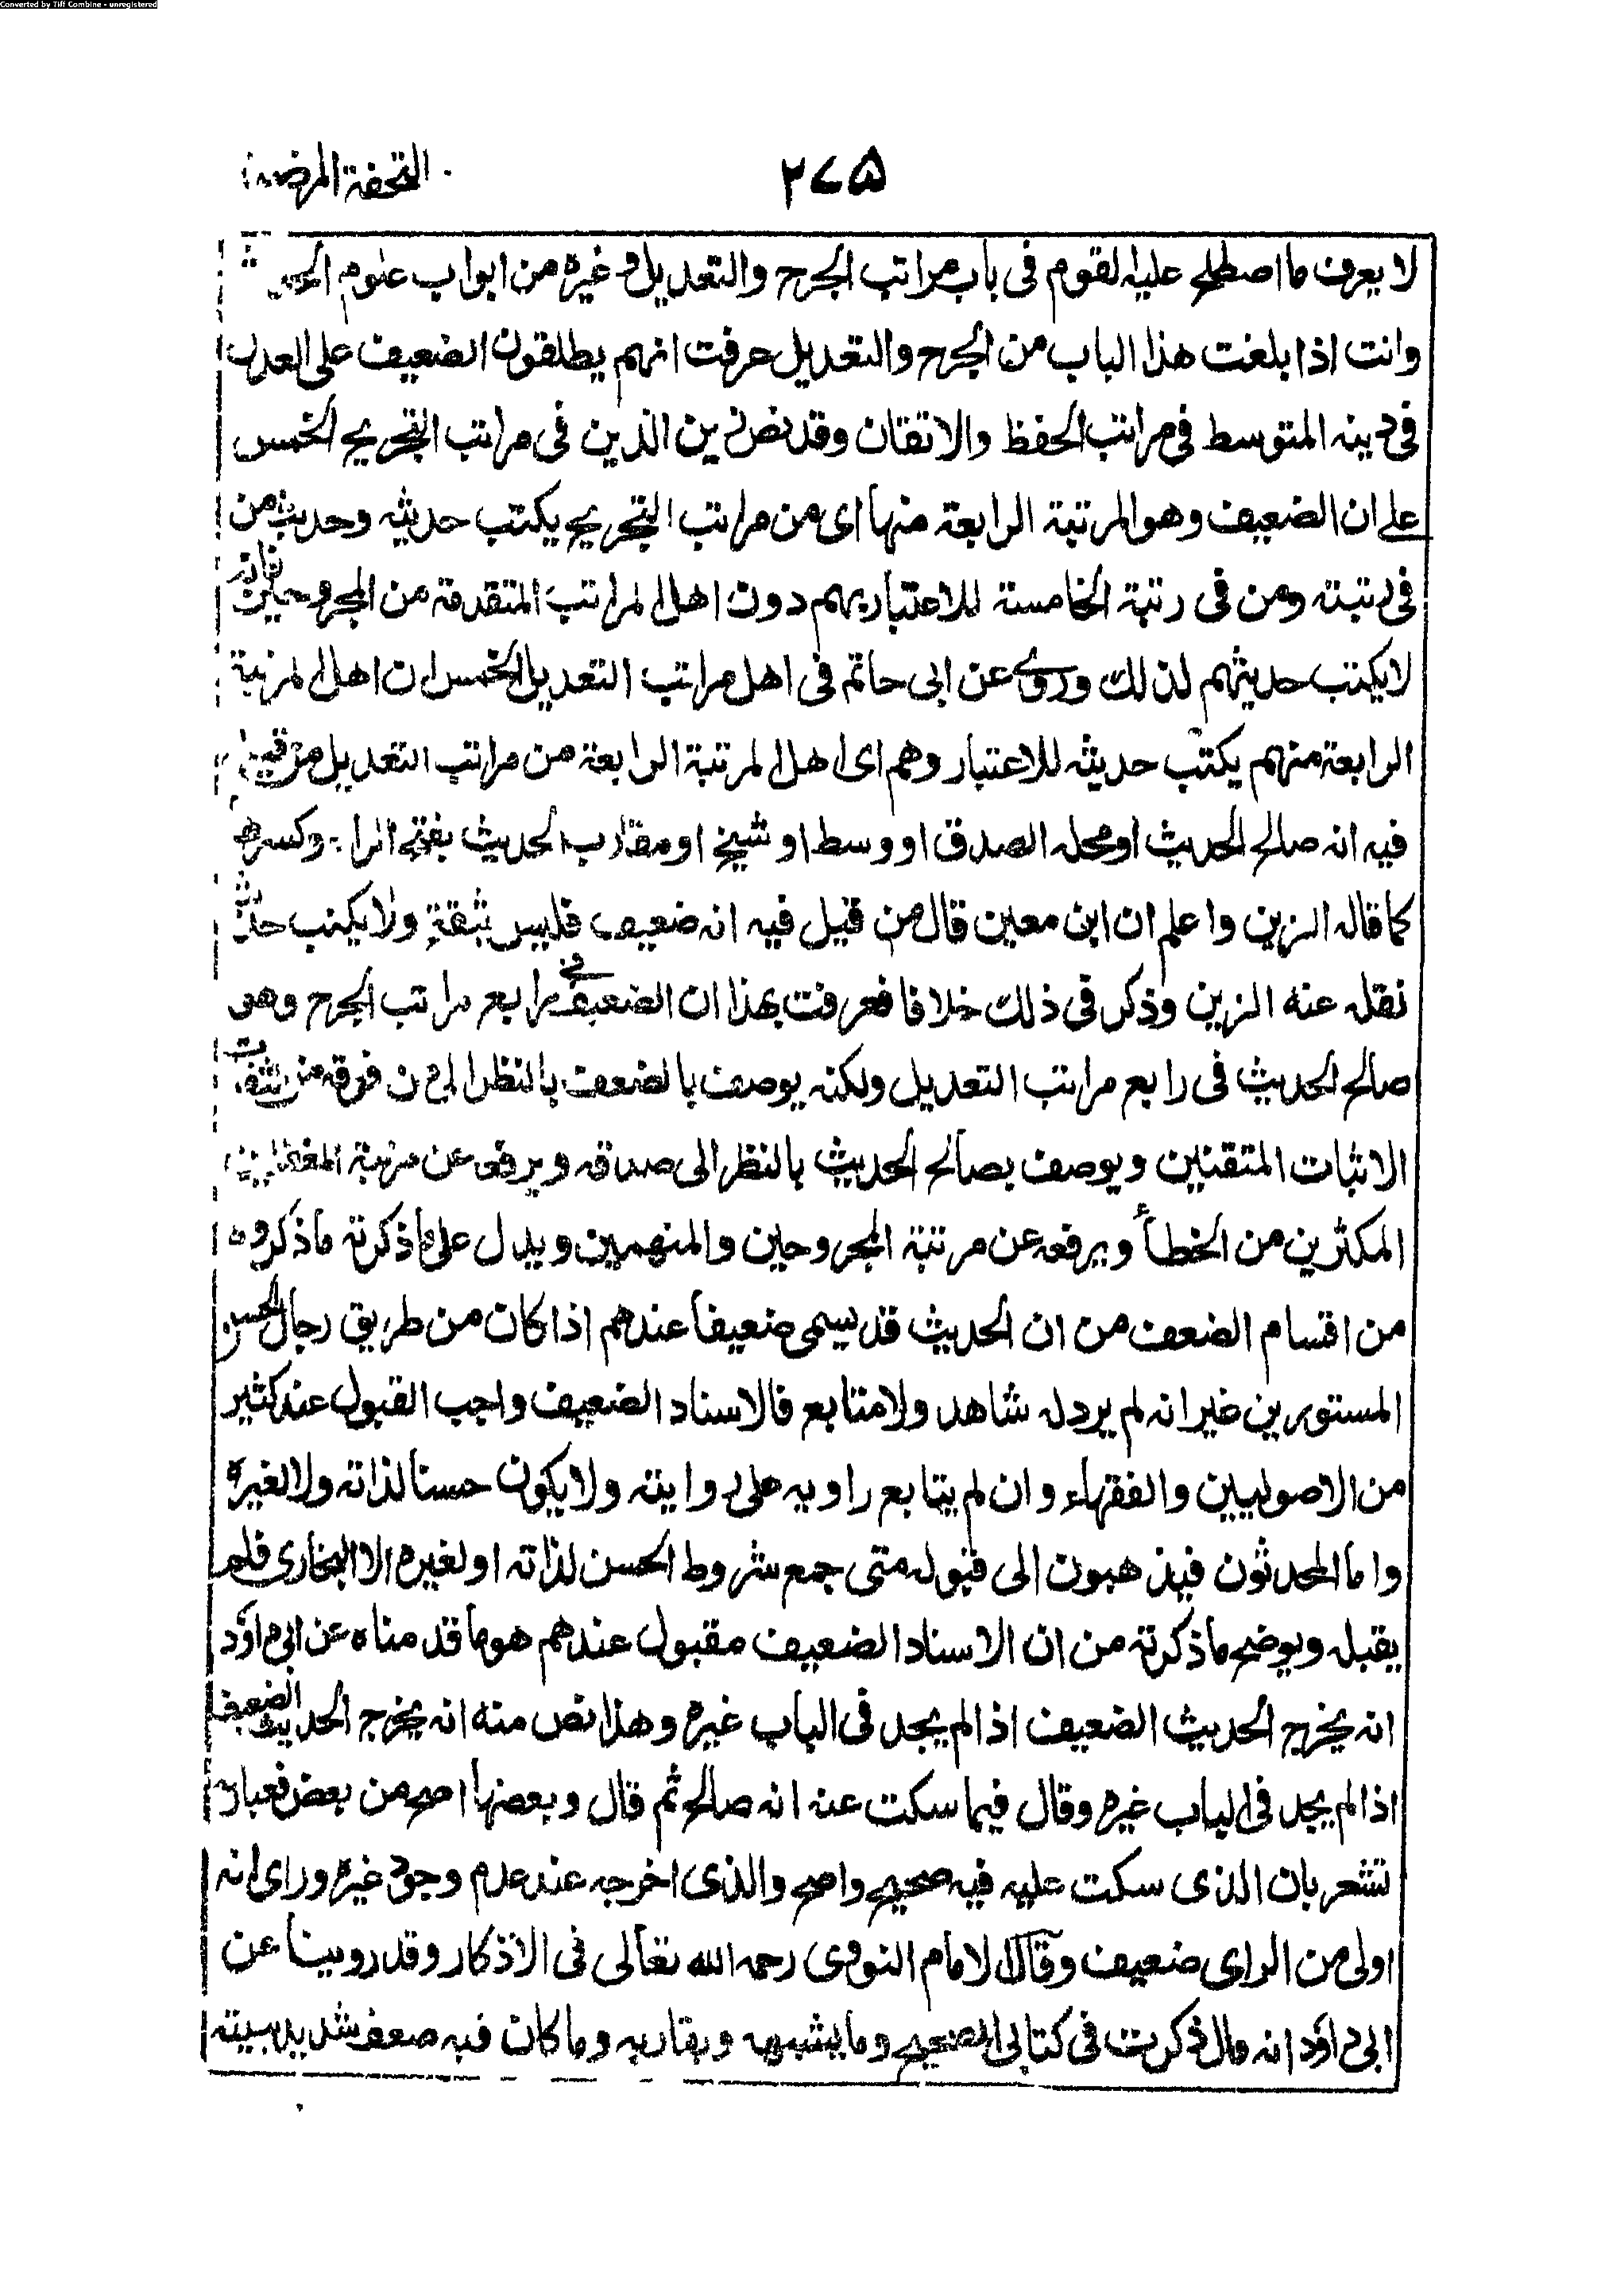 Converted by Tiff Combine - unregistered
٢٧٥
التحفة المرضية
لا يعرف ما اصطلح عليه القوم فى باب مراتب الجرح والتعديل وغيره من ابواب علوم الحديث
وانت اذا بلغت هذا الباب من الجرح والتعديل عرفت انهم يطلقون الضعيف على العدل
فى دينه المتوسط فى مراتب الحفظ والاتقان وقد نص زين الدين فى مراتب التجريح الخمس
على ان الضعيف وهو المرتبة الرابعة منها اى من مراتب التجريح يكتب حديثه وحديث من
فى رتبته ومن فى رتبة الخامسة للاعتبار بهم دون اهل المراتب المتقدمة من المجروحين فانه
لا يكتب حديثهم لذلك وروى عن ابى حاتم فى اهل مراتب التعديل الخمس ان اهل المرتبة
الرابعة منهم يكتب حديثه للاعتبار وهم اى اهل المرتبة الرابعة من مراتب التعديل من قيل
فيه انه صالح الحديث او محله الصدق او وسط او شيخ او مقارب الحديث بفتح الراء وكسرها
كما قاله الزين واعلم ان ابن معين قال من قيل فيه انه ضعيف فليس بثقة ولا يكتب حديثه
نقله عنه الزين وذكر فى ذلك خلافا فعرفت بهذا ان الضعيف فى رابع مراتب الجرح وهو
صالح الحديث فى رابع مراتب التعديل ولكنه يوصف بالضعف بالنظر الى من فوقه من الثقات
الاثبات المتقنين ويوصف بصالح الحديث بالنظر الى صدقه ويرفع عن مرتبة المغفلين
المكثرين من الخطأ ويرفعه عن مرتبة المجروحين والمتهمين ويدل على ما ذكرته ما ذكروه
من اقسام الضعف من ان الحديث قد يسمى ضعيفا عندهم اذا كان من طريق رجال الحسن
المستورين غير انه لم يرد له شاهد ولا متابع فالاسناد الضعيف واجب القبول عند كثير
من الاصوليين والفقهاء وان لم يتابع راويه على روايته ولا يكون حسنا لذاته ولا لغيره
واما المحدثون فيذهبون الى قبوله متى جمع شروط الحسن لذاته او لغيره الا البخارى فلم
يقبله ويوضح ما ذكرته من ان الاسناد الضعيف مقبول عندهم هو ما قدمناه عن ابى داؤد
انه يخرج الحديث الضعيف اذا لم يجد فى الباب غيره وهذا نص منه انه يخرج الحديث الضعيف
اذا لم يجد فى الباب غيره وقال فيما سكت عنه انه صالح ثم قال وبعضها اصح من بعض فعبارته
تشعر بان الذى سكت عليه فيه صحيح واصح والذى اخرجه عند عدم وجود غيره وراى انه
اولى من الراى ضعيف وقال الامام النووى رحمه الله تعالى فى الاذكار وقد روينا عن
ابى داؤد انه قال ذكرت فى كتابى الصحيح وما يشبهه ويقاربه وما كان فيه ضعف شديد بينته